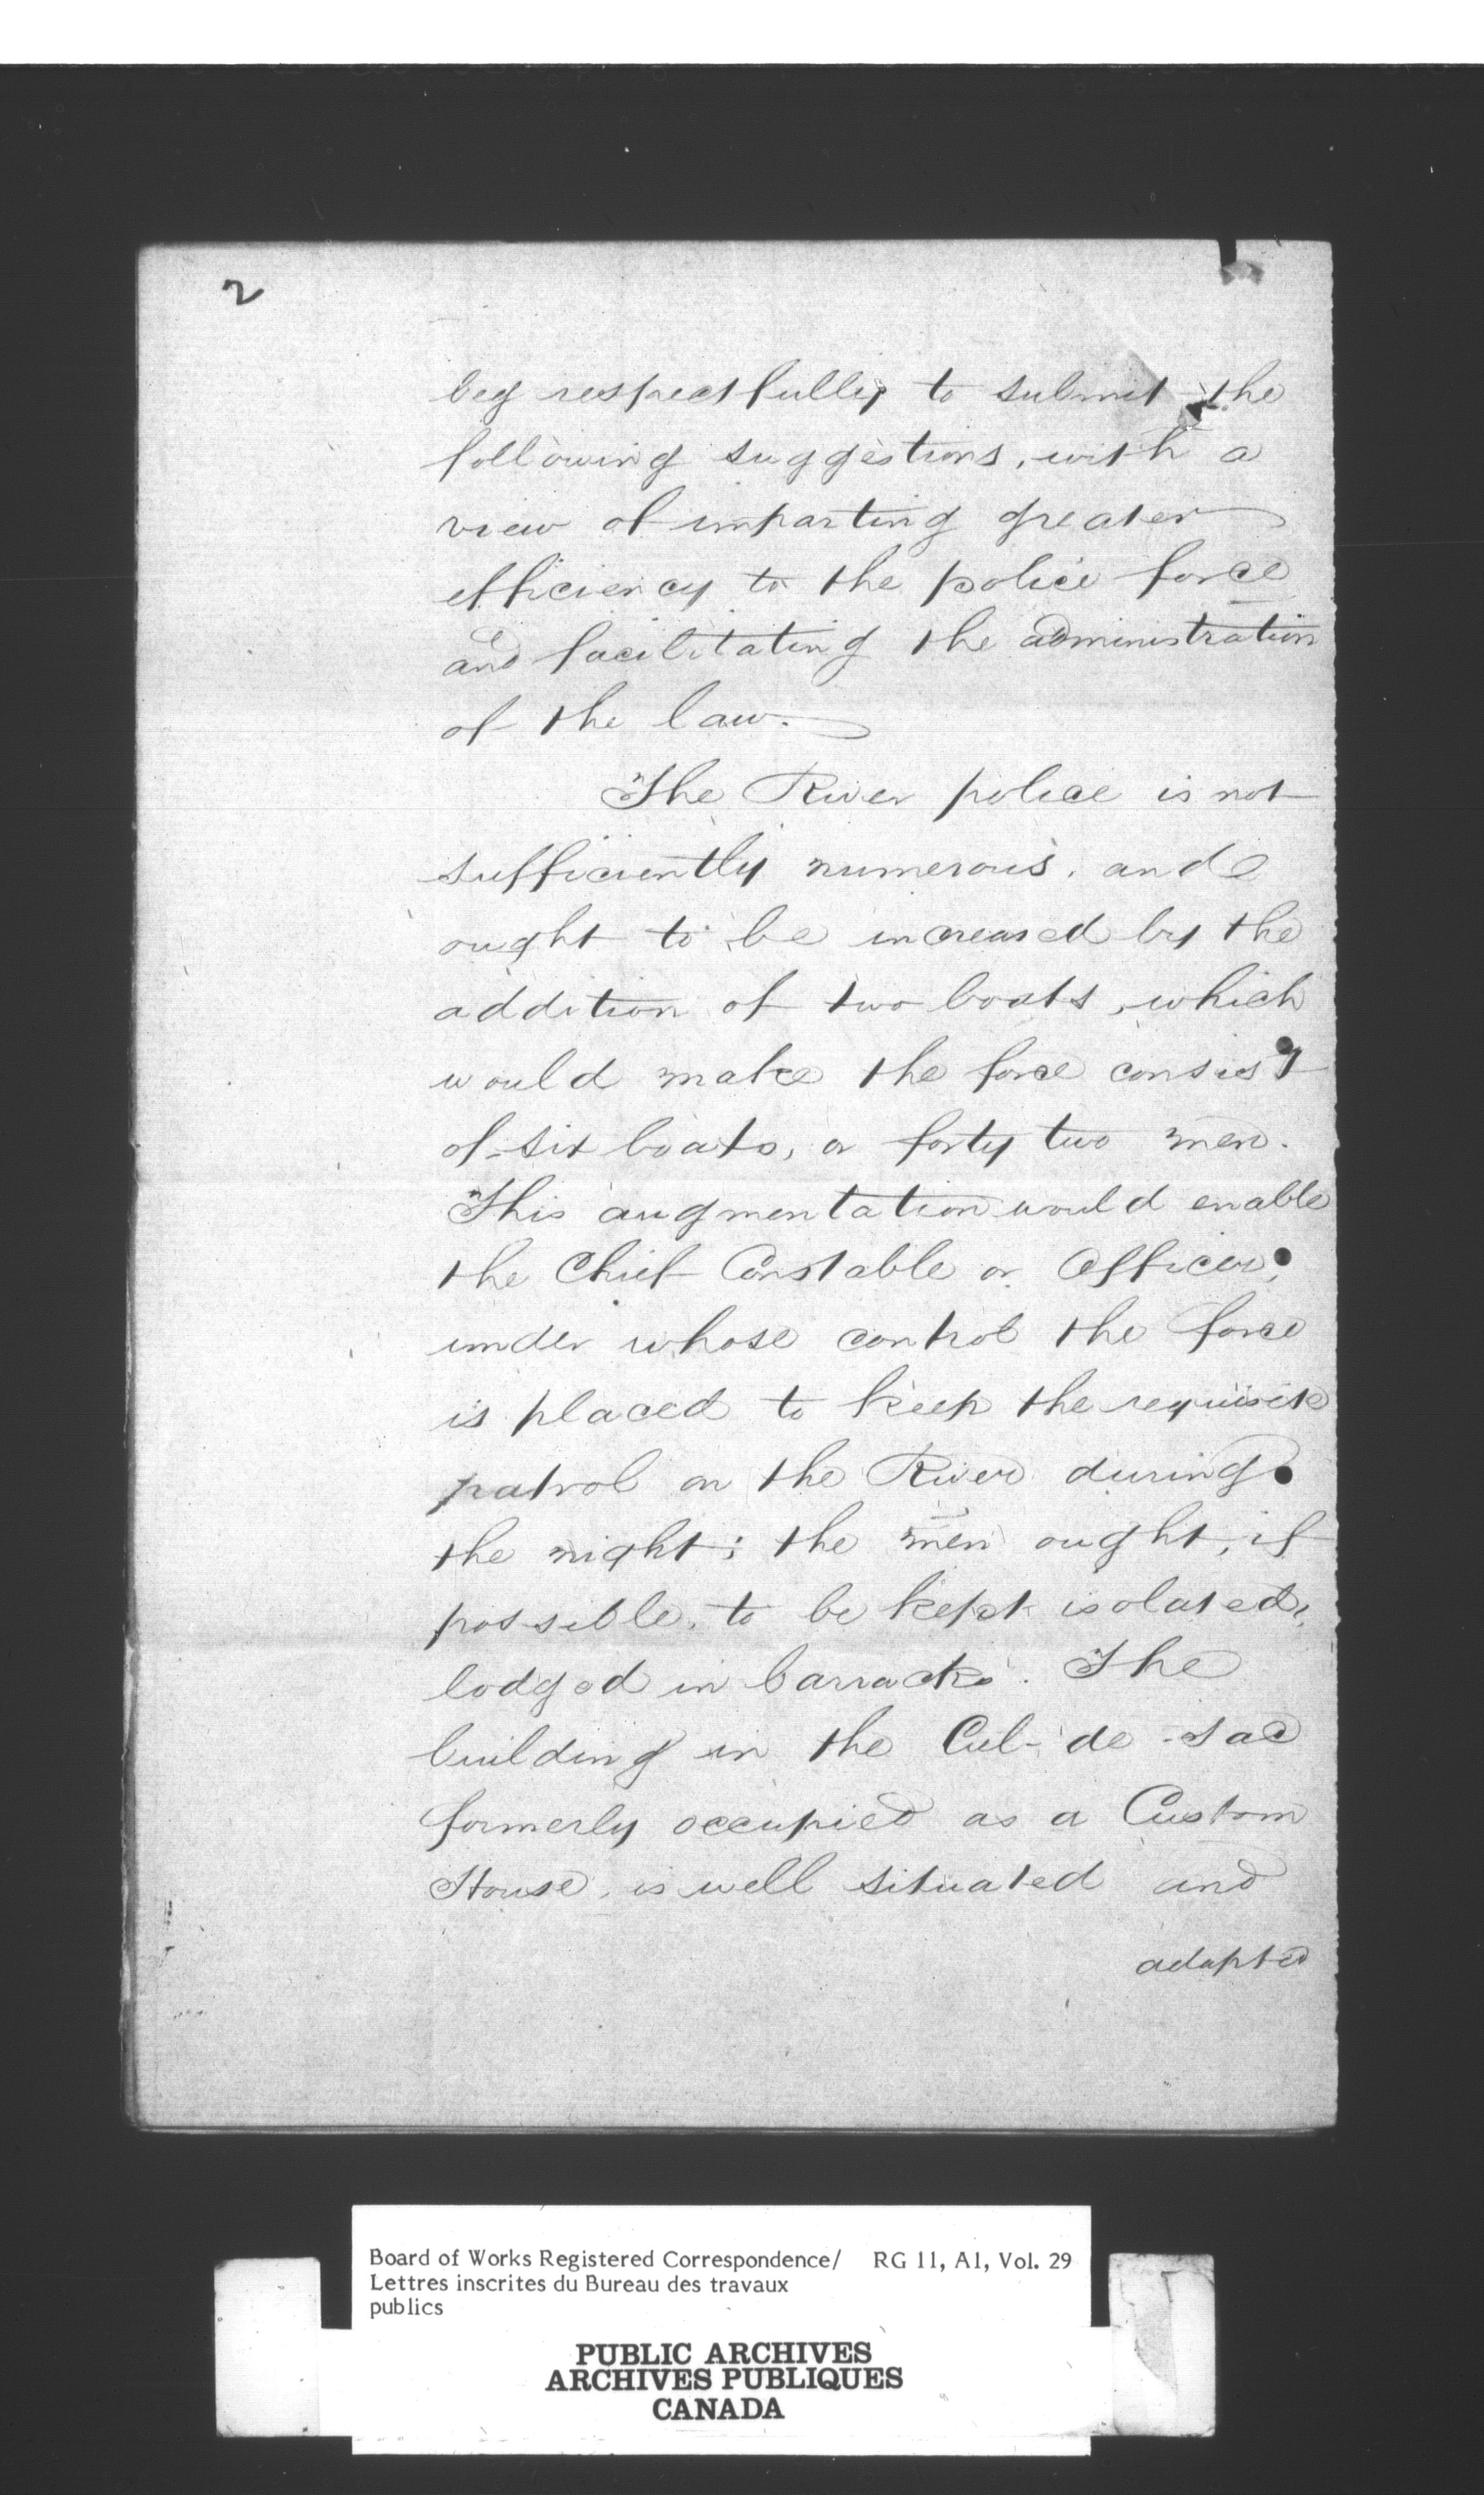 2
beg respectfully to submit the
following suggestions, with a
view of imparting greater
efficiency to the police force
and facilitating the administration
of the law.
The River police is not
sufficiently numerous, and
ought to be increased by the
addition of two boats, which
would make the force consist
of six boats, or forty two men.
This augmentation would enable
the Chief Constable or Officer,
under whose control the force
is placed to keep the requisite
patrol on the River during
the night; the men ought, if
possible, to be kept isolated,
lodged in barracks. The
building in the Cul-de-sac
formerly occupied as a Custom
House, is well situated and
adapted
Board of Works Registered Correspondence/ RG 11, A1, Vol. 29
Lettres inscrites du Bureau des travaux
publics
PUBLIC ARCHIVES
ARCHIVES PUBLIQUES
CANADA